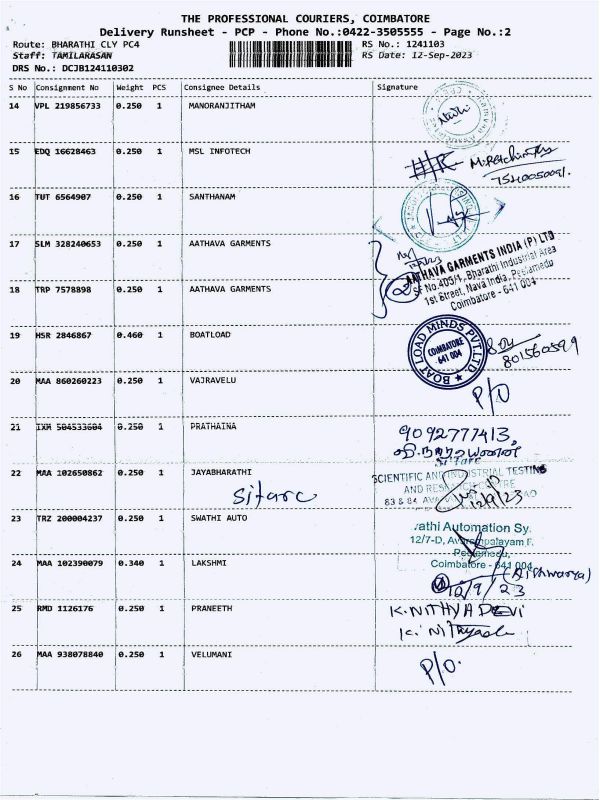 THE PROFESSIONAL COURIERS, COIMBATORE
Delivery Runsheet - PCP - Phone No.:0422-3505555 - Page No.:2
Route: BHARATHI CLY PC4 RS No.: 1241103
Staff: TAMILARASAN RS Date: 12-Sep-2023
DRS No.: DCJB124110302
S No Consignment No Weight PCS Consignee Details Signature
14 VPL 219856733 0.250 1 MANORANJITHAM
15 EDQ 16628463 0.250 1 MSL INFOTECH
16 TUT 6564907 0.250 1 SANTHANAM
17 SLM 328240653 0.250 1 AATHAVA GARMENTS
AATHAVA GARMENTS INDIA (P) LTD
SF No.405/1, Bharathi Industrial Area
1st Street, Nava India, Peelamedu
Coimbatore - 641 004
18 TRP 7578898 0.250 1 AATHAVA GARMENTS
19 HSR 2846867 0.460 1 BOATLOAD
BOAT LOAD MINDS PVT.LTD.
COIMBATORE
641 004
20 MAA 860260223 0.250 1 VAJRAVELU P/D
21 IXM 504533604 0.250 1 PRATHAINA
9092777413,
22 MAA 102650862 0.250 1 JAYABHARATHI
Sitarc
SCIENTIFIC AND INDUSTRIAL TESTING
AND RESEARCH CENTRE
83 & 84,
12/9/23
23 TRZ 200004237 0.250 1 SWATHI AUTO
athi Automation Sy.
12/7-D, Avarampalayam
Peelamedu,
Coimbatore - 641 004
24 MAA 102390079 0.340 1 LAKSHMI
(Aishwarya)
12/9/23
25 RMD 1126176 0.250 1 PRANEETH
K.NITHYA DEVI
26 MAA 938078840 0.250 1 VELUMANI P/D.